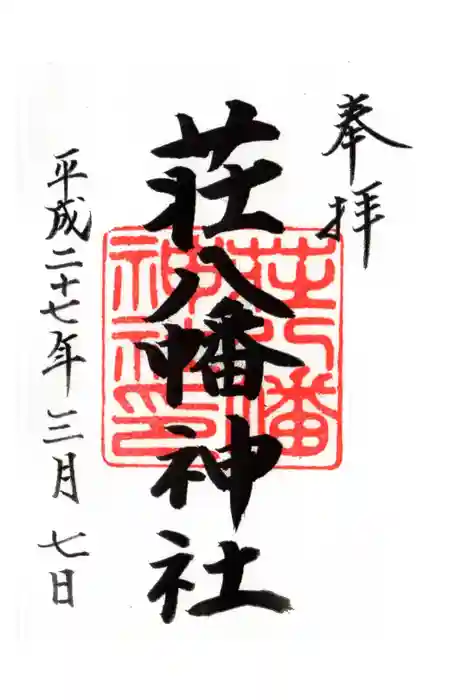 奉拝
荘八幡神社
荘八幡
神社印
平成二十七年三月七日